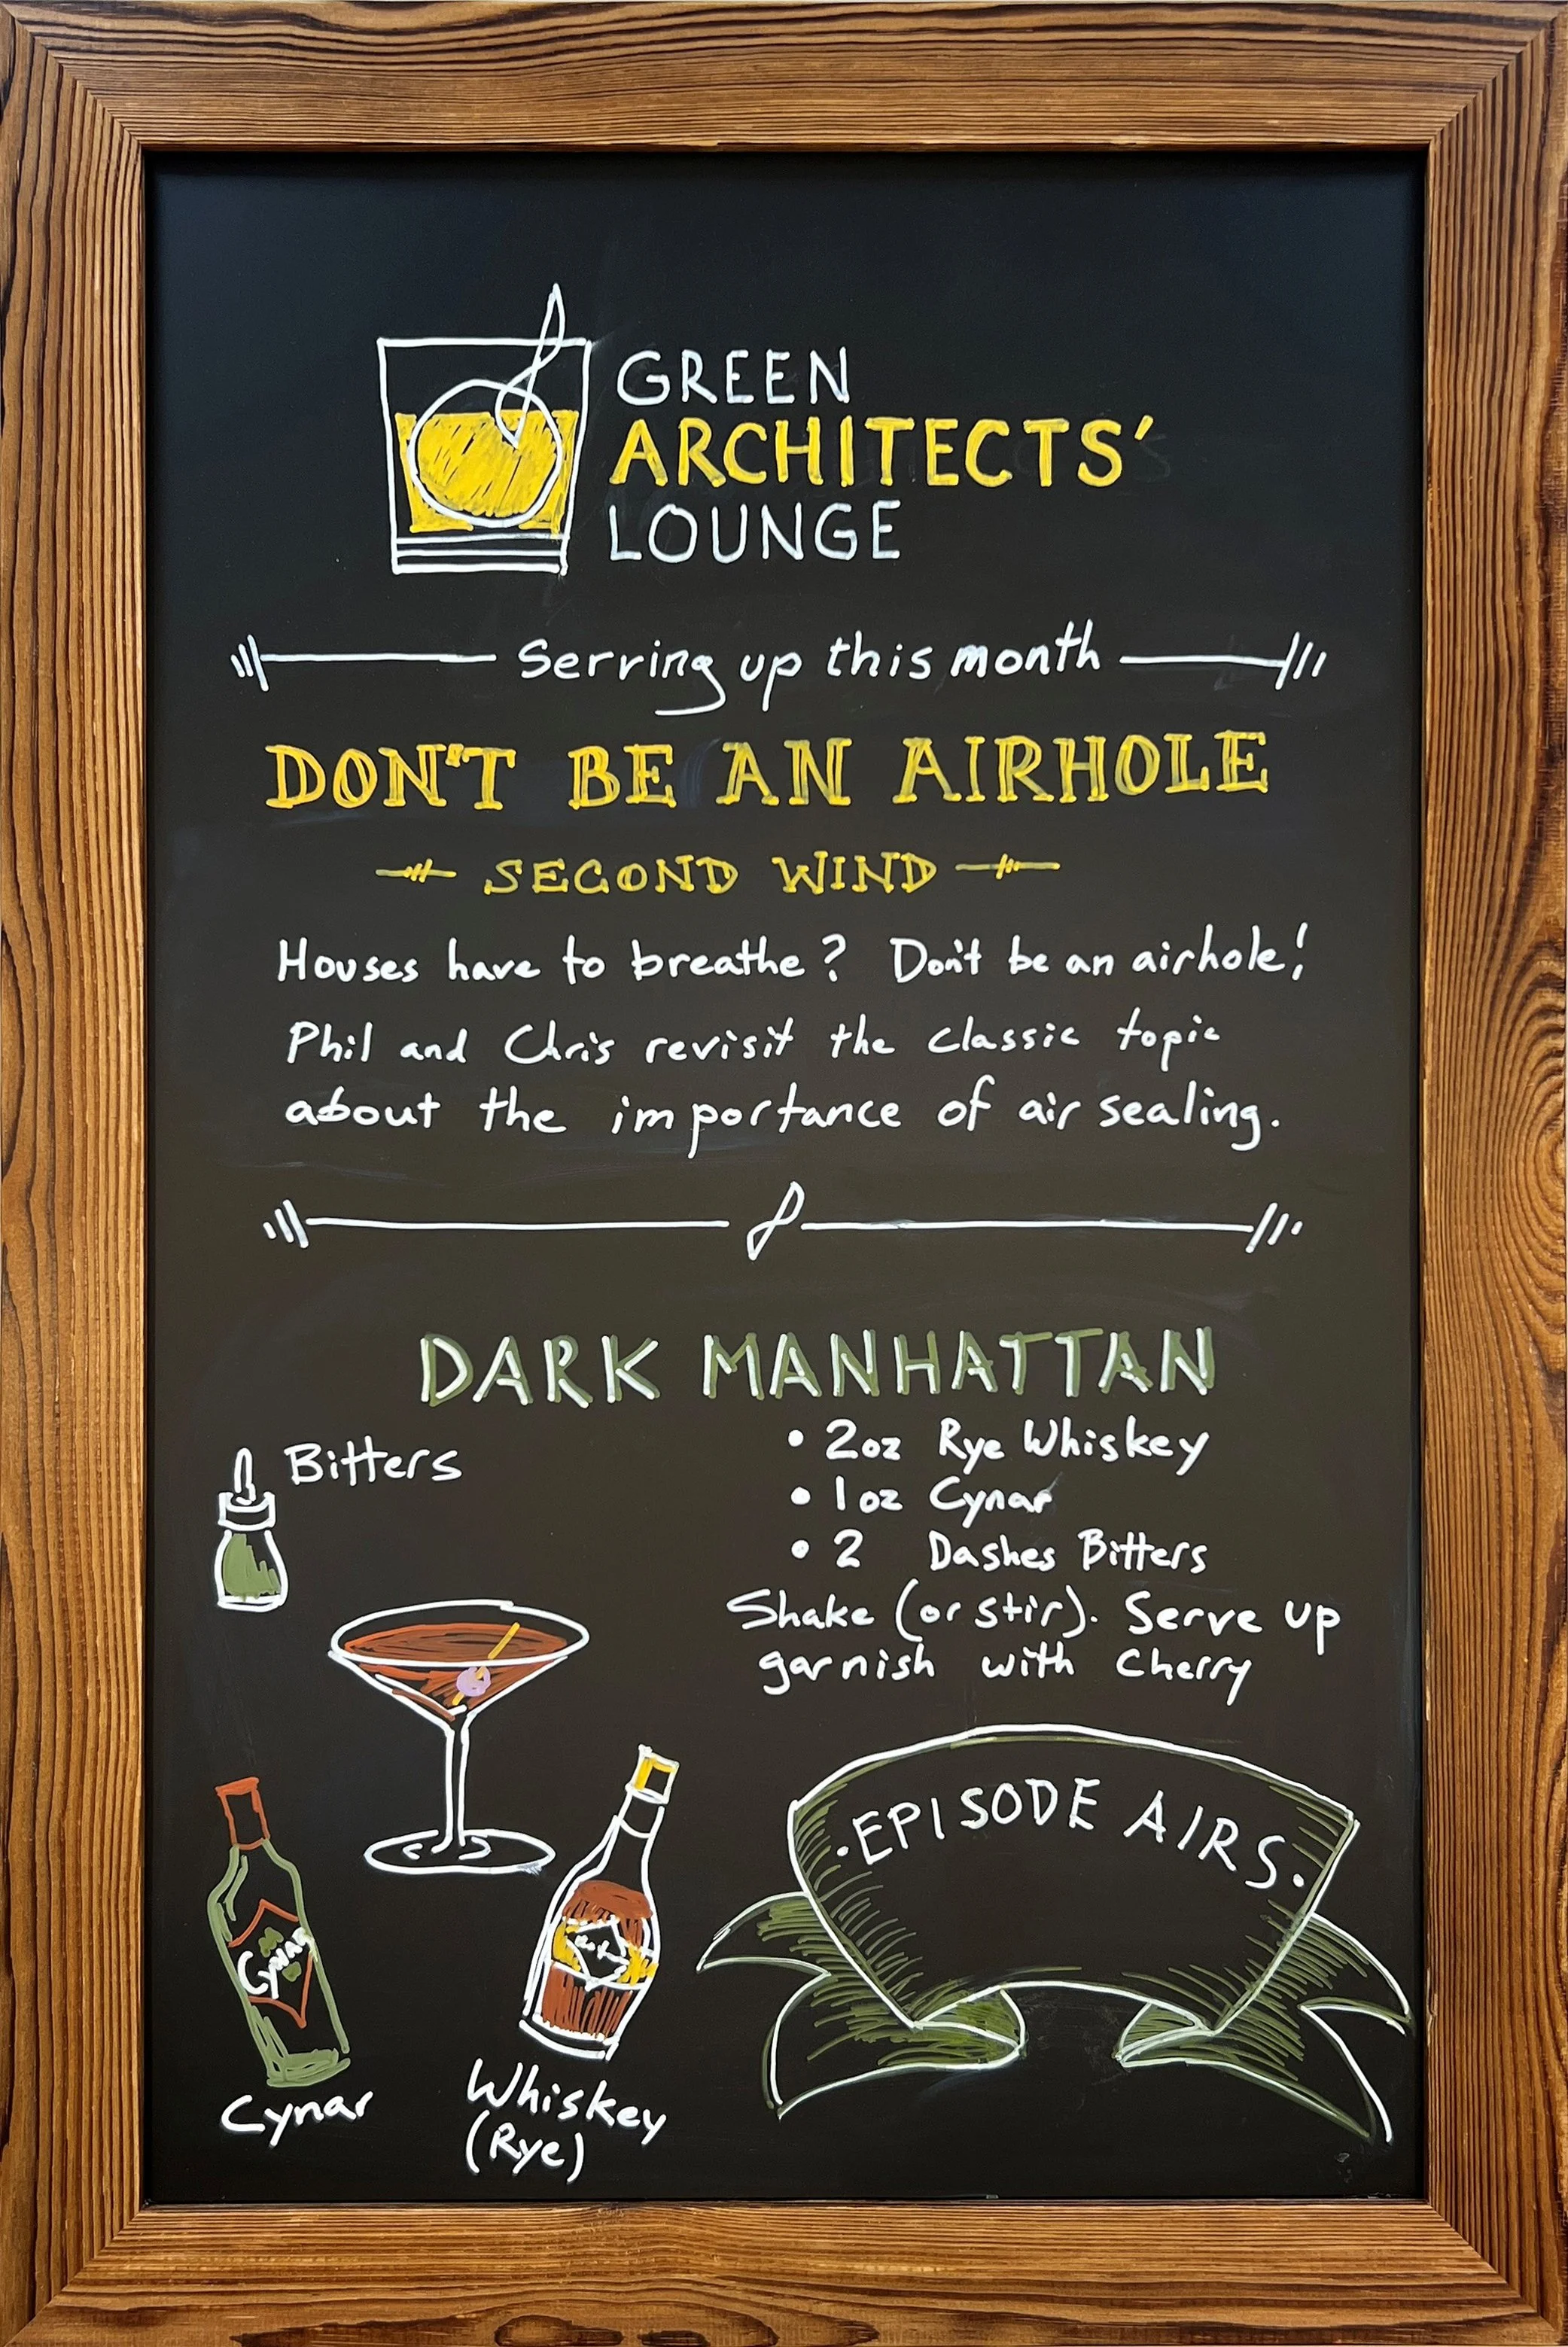 GREEN
ARCHITECTS'
LOUNGE
Serving up this month
DON'T BE AN AIRHOLE
SECOND WIND
Houses have to breathe? Don't be an airhole!
Phil and Chris revisit the classic topic
about the importance of air sealing.
DARK MANHATTAN
• 2oz Rye Whiskey
• 1oz Cynar
• 2 Dashes Bitters
Shake (or stir). Serve up
garnish with Cherry
Bitters
Cynar
Cynar
Whiskey
(Rye)
·EPISODE AIRS·